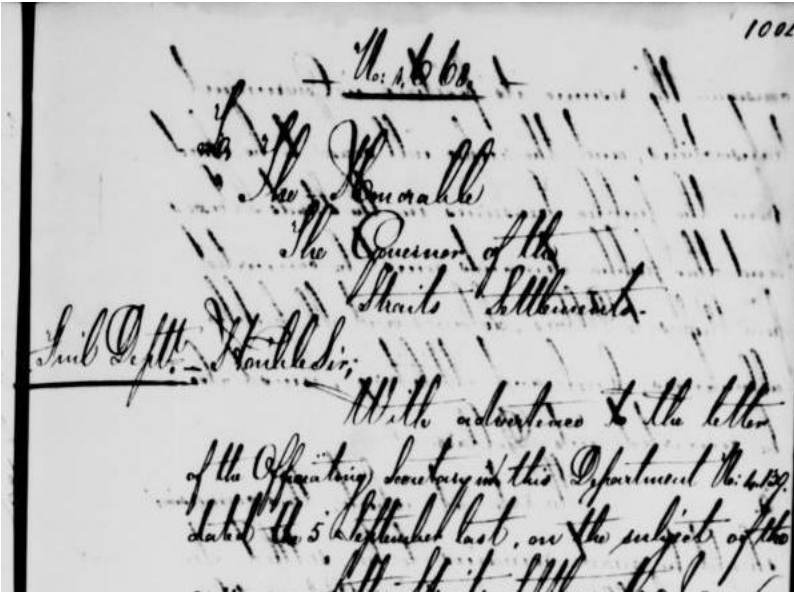 1002
No: 1668
To
The Honorable
The Governor of the
Straits Settlements.
Dept. Honble Sir,
With advertence to the letter
of the Officiating Secretary in this Department No:
dated the 5 September last, on the subject of the